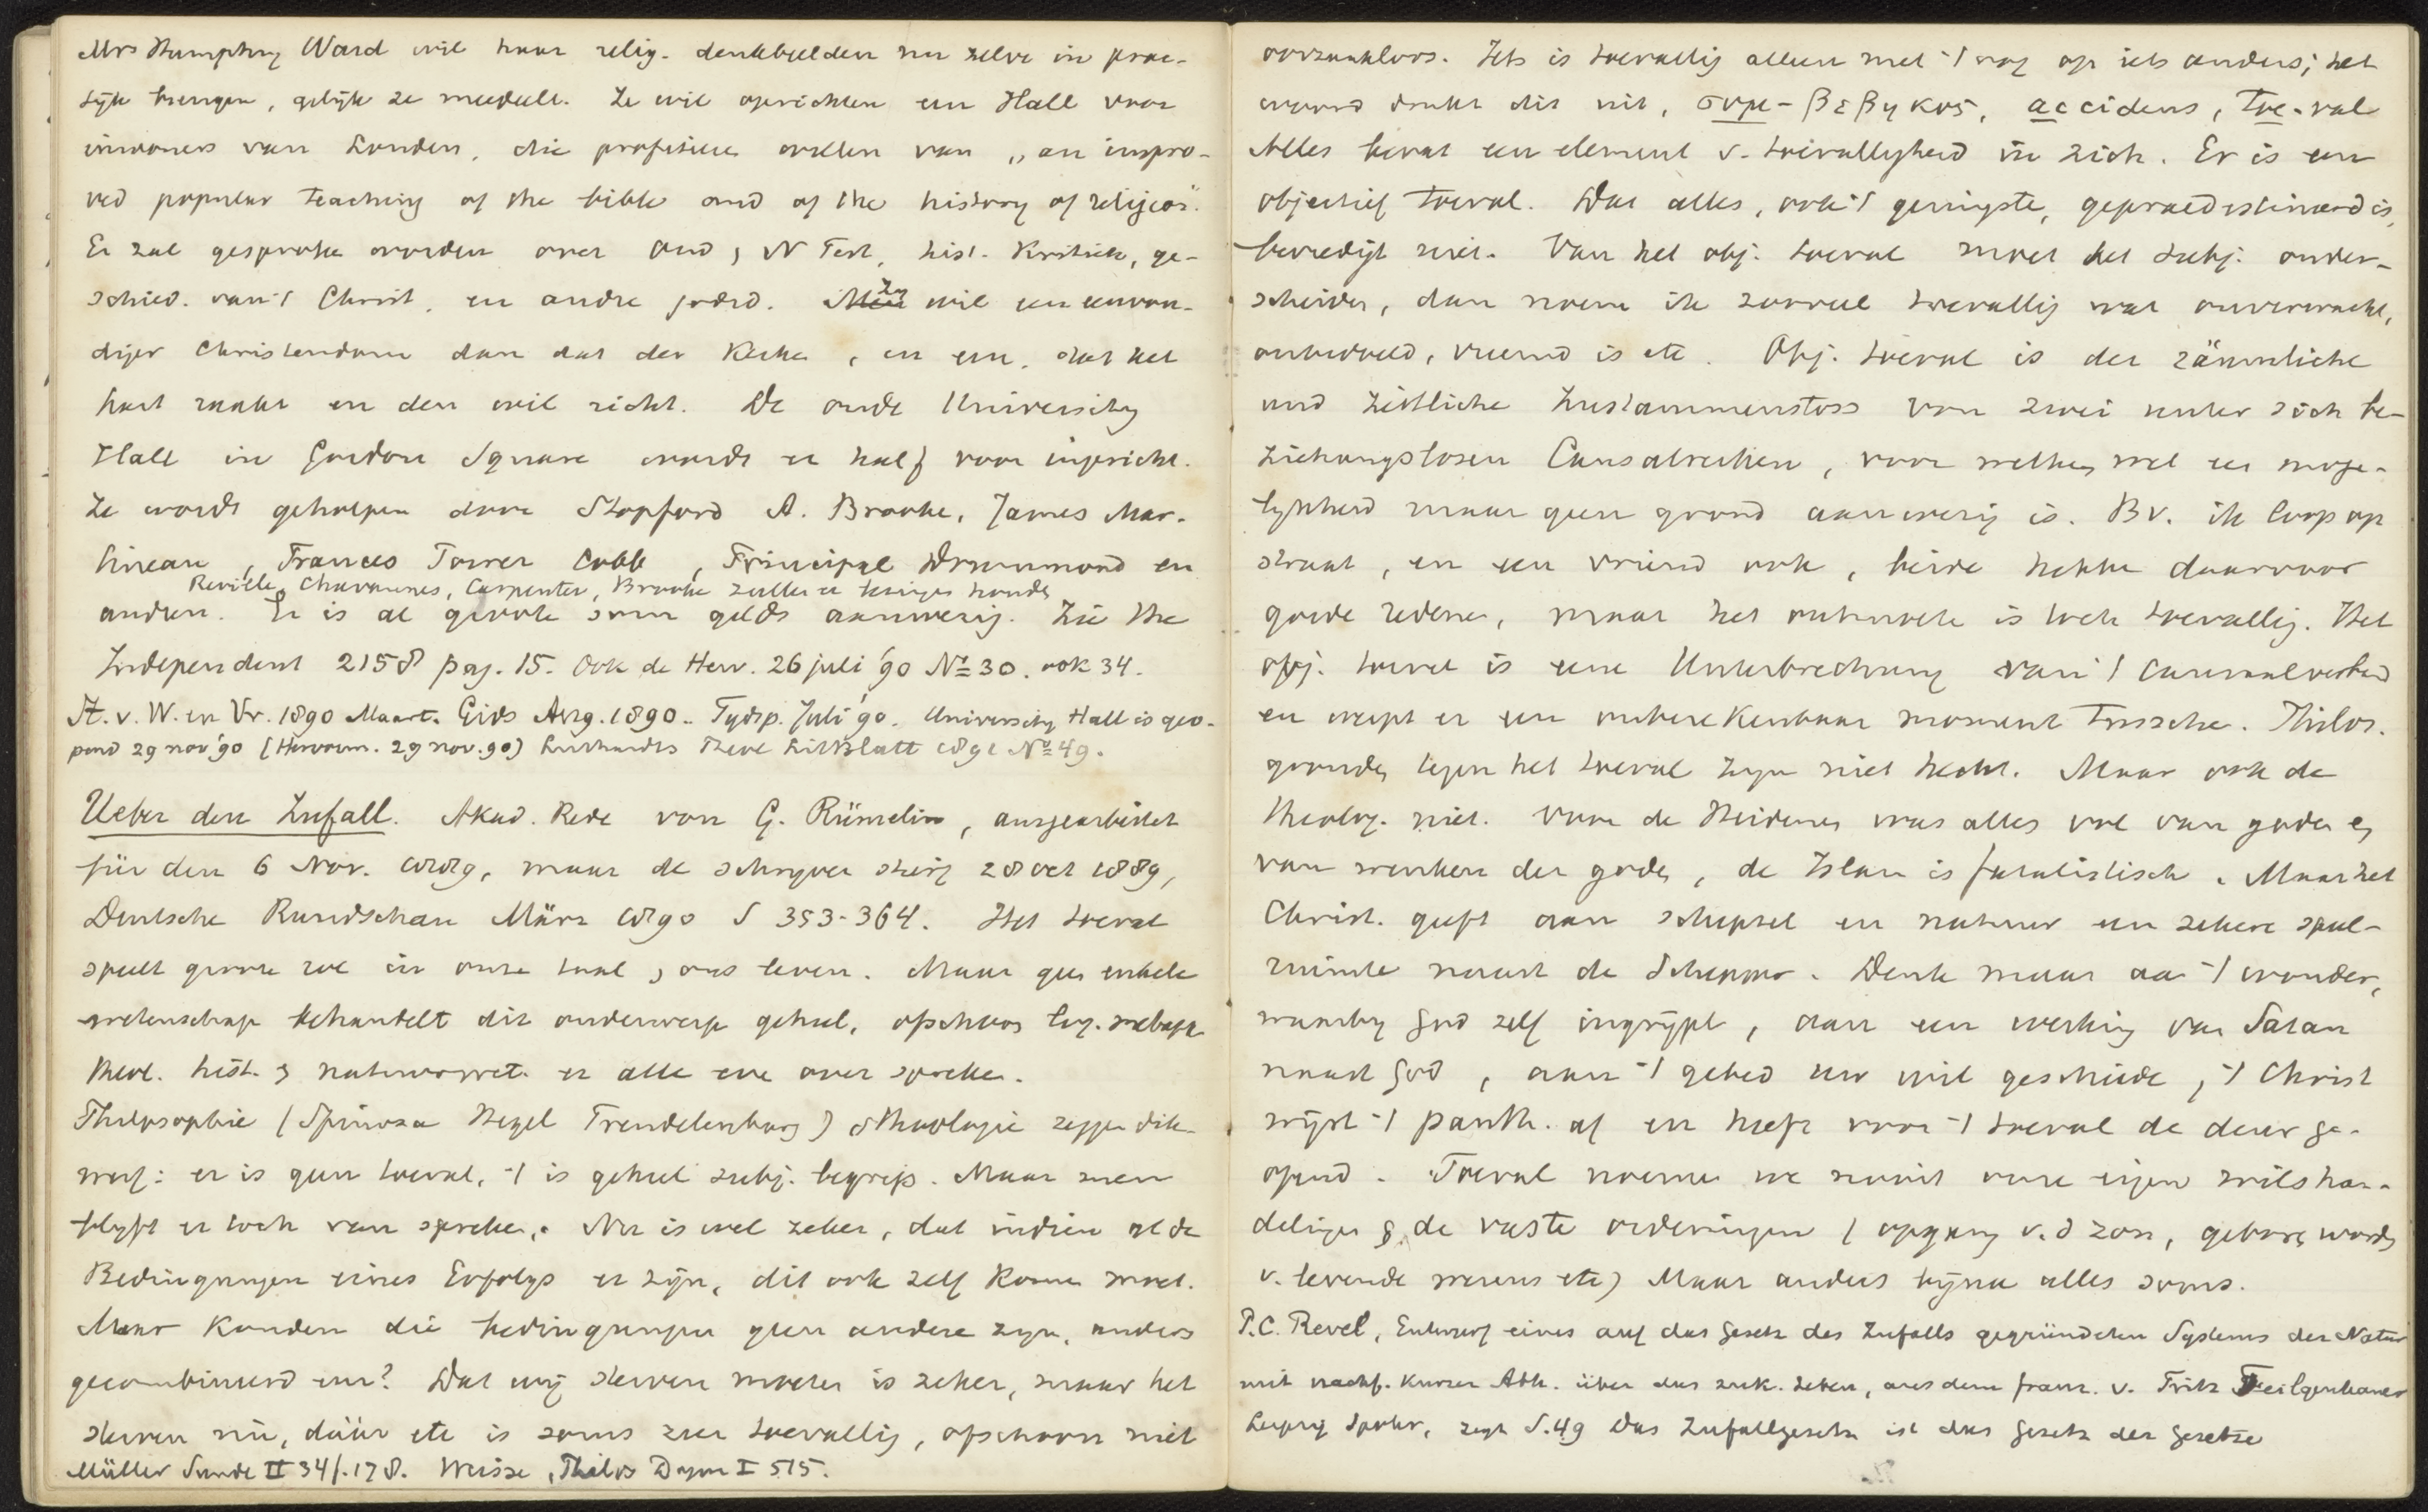 Mrs Humphry Ward wil haar relig. denkbeelden nu zelve in prac-
tijk brengen, gelijk ze meedeelt. Ze wil oprichten een Hall voor
inwoners van Londen, die profiteeren willen van „an impro-
ved popular teaching of the bible and of the history of religion".
Er zal gesproken worden over Oud & N Test, hist. Kritiek, ge-
schied. van 't Christ. en andre godsd. Men Zij wil een eenvou-
diger Christendom dan dat der Kerken, en een, dat het
hart raakt en den wil richt. De oude University
Hall in Gordon Square wordt er half voor ingericht.
Ze wordt geholpen door Stopford A. Brooke, James Mar-
tineau, Frances Power Cobbe, Principal Drummond en
Reville, Chavannes, Carpenter, Brooke zullen er lezingen houden
andren. Er is al groote som gelds aanwezig. Zie The
Independent 2158 pag. 15. Ook de Herv. 26 juli '90 No 30. ook 34.
St. v. W. en Vr. 1890 Maart. Gids Aug. 1890. Tijdsp. Juli '90. University Hall is geo-
pend 29 nov '90 (Hervorm. 29 nov. 90) Luthardts Theol LitBlatt 1891 No 49.
Ueber den Zufall. Akad. Rede von G. Rümelin, ausgearbeitet
für den 6 Nov. 1889, maar de schrijver stierf 28 oct 1889,
Deutsche Rundschau März 1890 S 353-364. Het toeval
speelt groote rol in onze taal & ons leven. Maar geen enkele
wetenschap behandelt dit onderwerp geheel, ofschoon log. metaph.
theol. hist. & natuurwet. er alle over spreken.
Philosophie (Spinoza Hegel Trendelenburg) & theologie zeggen dik-
werf: er is geen toeval, 't is geheel subj. begrip. Maar men
blijft er toch van spreken. Nu is wel zeker, dat indien al de
Bedingungen eines Erfolgs er zijn, dit ook zelf komen moet.
Maar konden die bedingungen geen andere zijn, anders
gecombineerd enz? Dat wij sterven moeten is zeker, maar het
sterven nu, dáár etc is soms zeer toevallig, ofschoon niet
Müller Sunde II 34f. 178. Weisse, Philos Dogm I 515.
oorzaakloos. Iets is toevallig alleen met 't oog op iets anders; het
woord drukt dit uit, συμ-βεβηκος, accidens, toe-val
Alles bevat een element v. toevalligheid in zich. Er is een
objectief toeval. Dat alles, ook 't geringste, gepraedestineerd is,
bevredigt niet. Van het obj. toeval moet het subj. onder-
scheiden, dan noem ik zooveel toevallig wat onverwacht,
onbedoeld, vreemd is etc. Obj. toeval is der räumliche
und zeitliche Zusammenstoss von zwei unter sich be-
ziehungslosen Causalreihen, voor welken wel een moge-
lijkheid maar geen grond aanwezig is. Bv. ik loop op
straat, en een vriend ook, beide hebben daarvoor
goede redenen, maar het ontmoeten is toch toevallig. Het
obj. toeval is eene Unterbrechung van 't causaalverband
en werpt er een onberekenbaar moment tusschen. Philos.
gronden tegen het toeval zijn niet hecht. Maar ook de
theolog. niet. Voor de Heidenen was alles vol van goden en
van werken der goden, de Islam is fatalistisch. Maar het
Christ. geeft aan schepsel en natuur een zekere speel-
ruimte naast de Schepper. Denk maar aan 't wonder,
waarbij God zelf ingrijpt, aan een werking van Satan
naast God, aan 't gebed uw wil geschiede, 't Christ
wijst 't panth. af en heeft voor 't toeval de deur ge-
opend. Toeval noemen we nooit onze eigen wilshan-
delingen & de vaste ordeningen (opgang v. d zon, geboren worden
v. levende wezens etc) Maar anders bijna alles soms.
P.C. Revel, Entwurf eines auf das Gesetz des Zufalls gegründeten Systems der Natur
mit nachf. kurzer Abh. über das zuk. Leben, aus dem franz. v. Fritz Feilgenhauer
Leipzig Spohr, zegt S. 49 Das Zufallgesetz ist das Gesetz der Gesetze